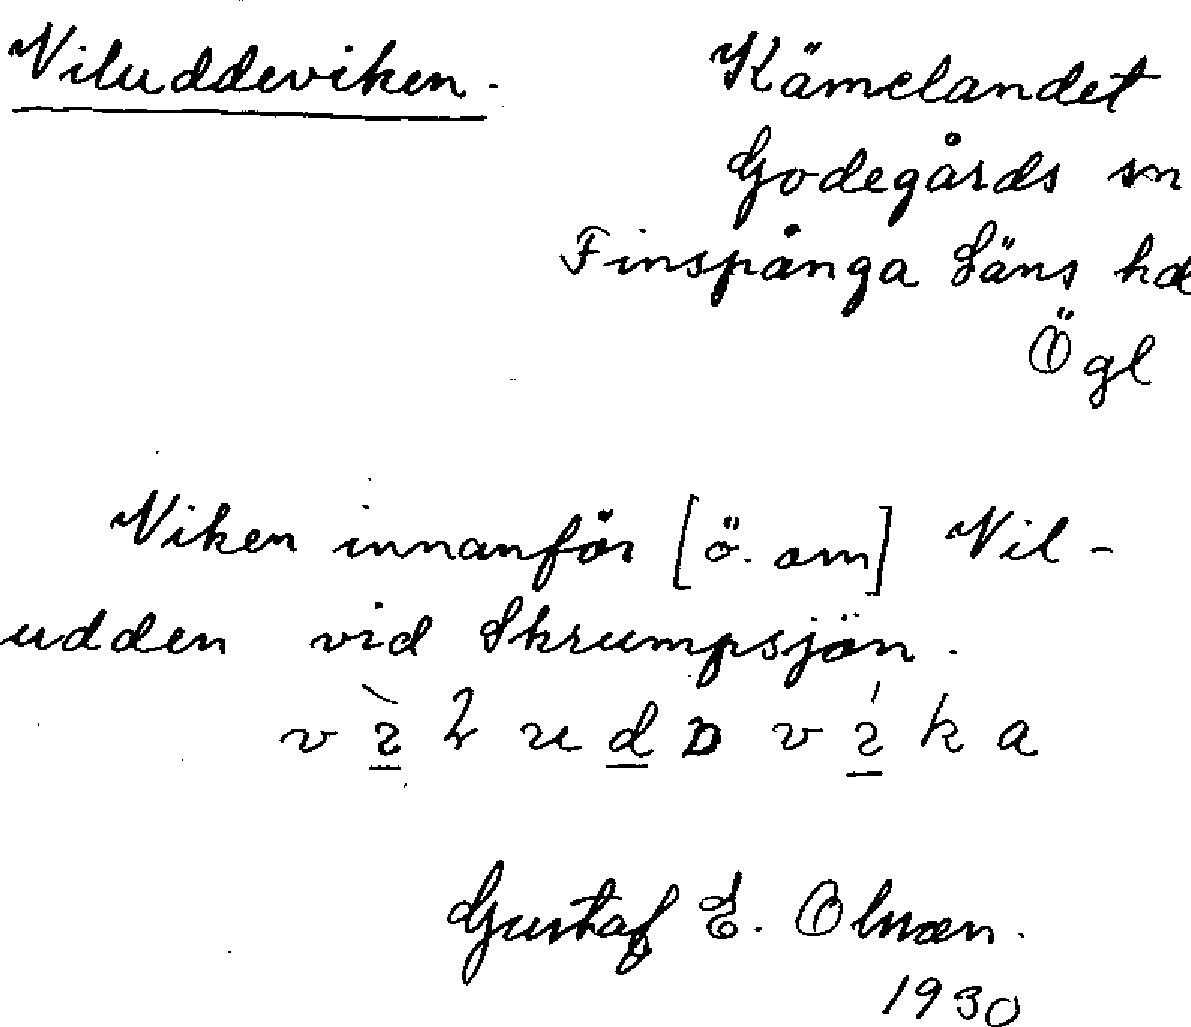 Viluddeviken.
Kämelandet
Godegårds sn
Finspånga Läns hd
Ögl
Viken innanför [ö. om] Vil-
udden vid Skrumpsjön.
Gustaf E. Olson.
1930